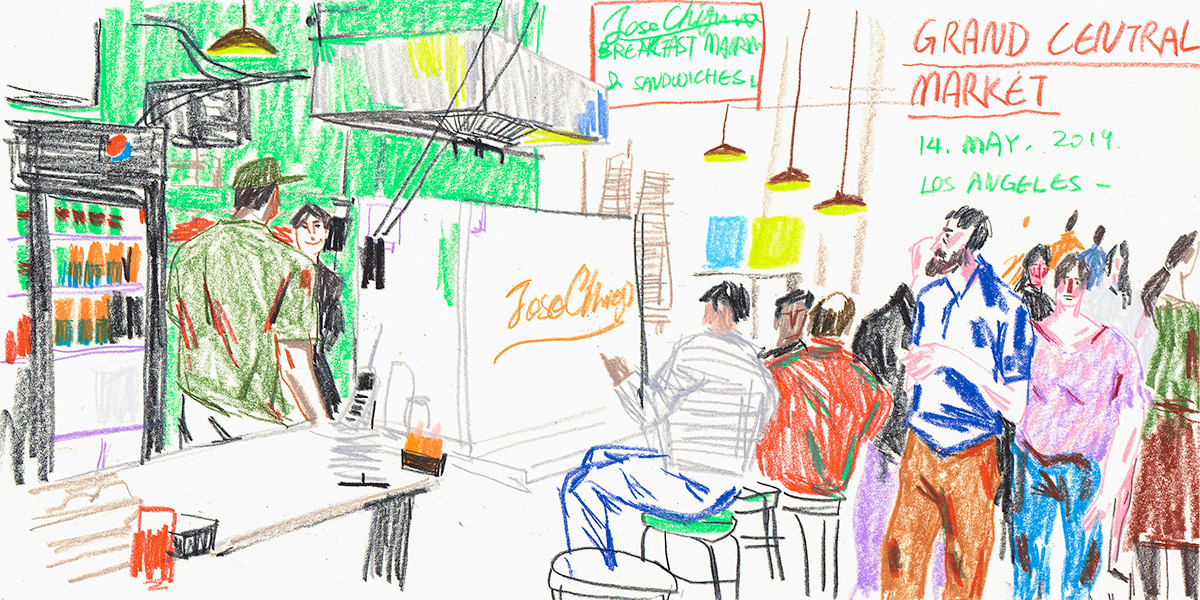 Jose Chiquito
BREAKFAST MARKM
& SANDWICHES
GRAND CENTRAL
MARKET
14. MAY. 2019.
LOS ANGELES –
Jose Chiqo